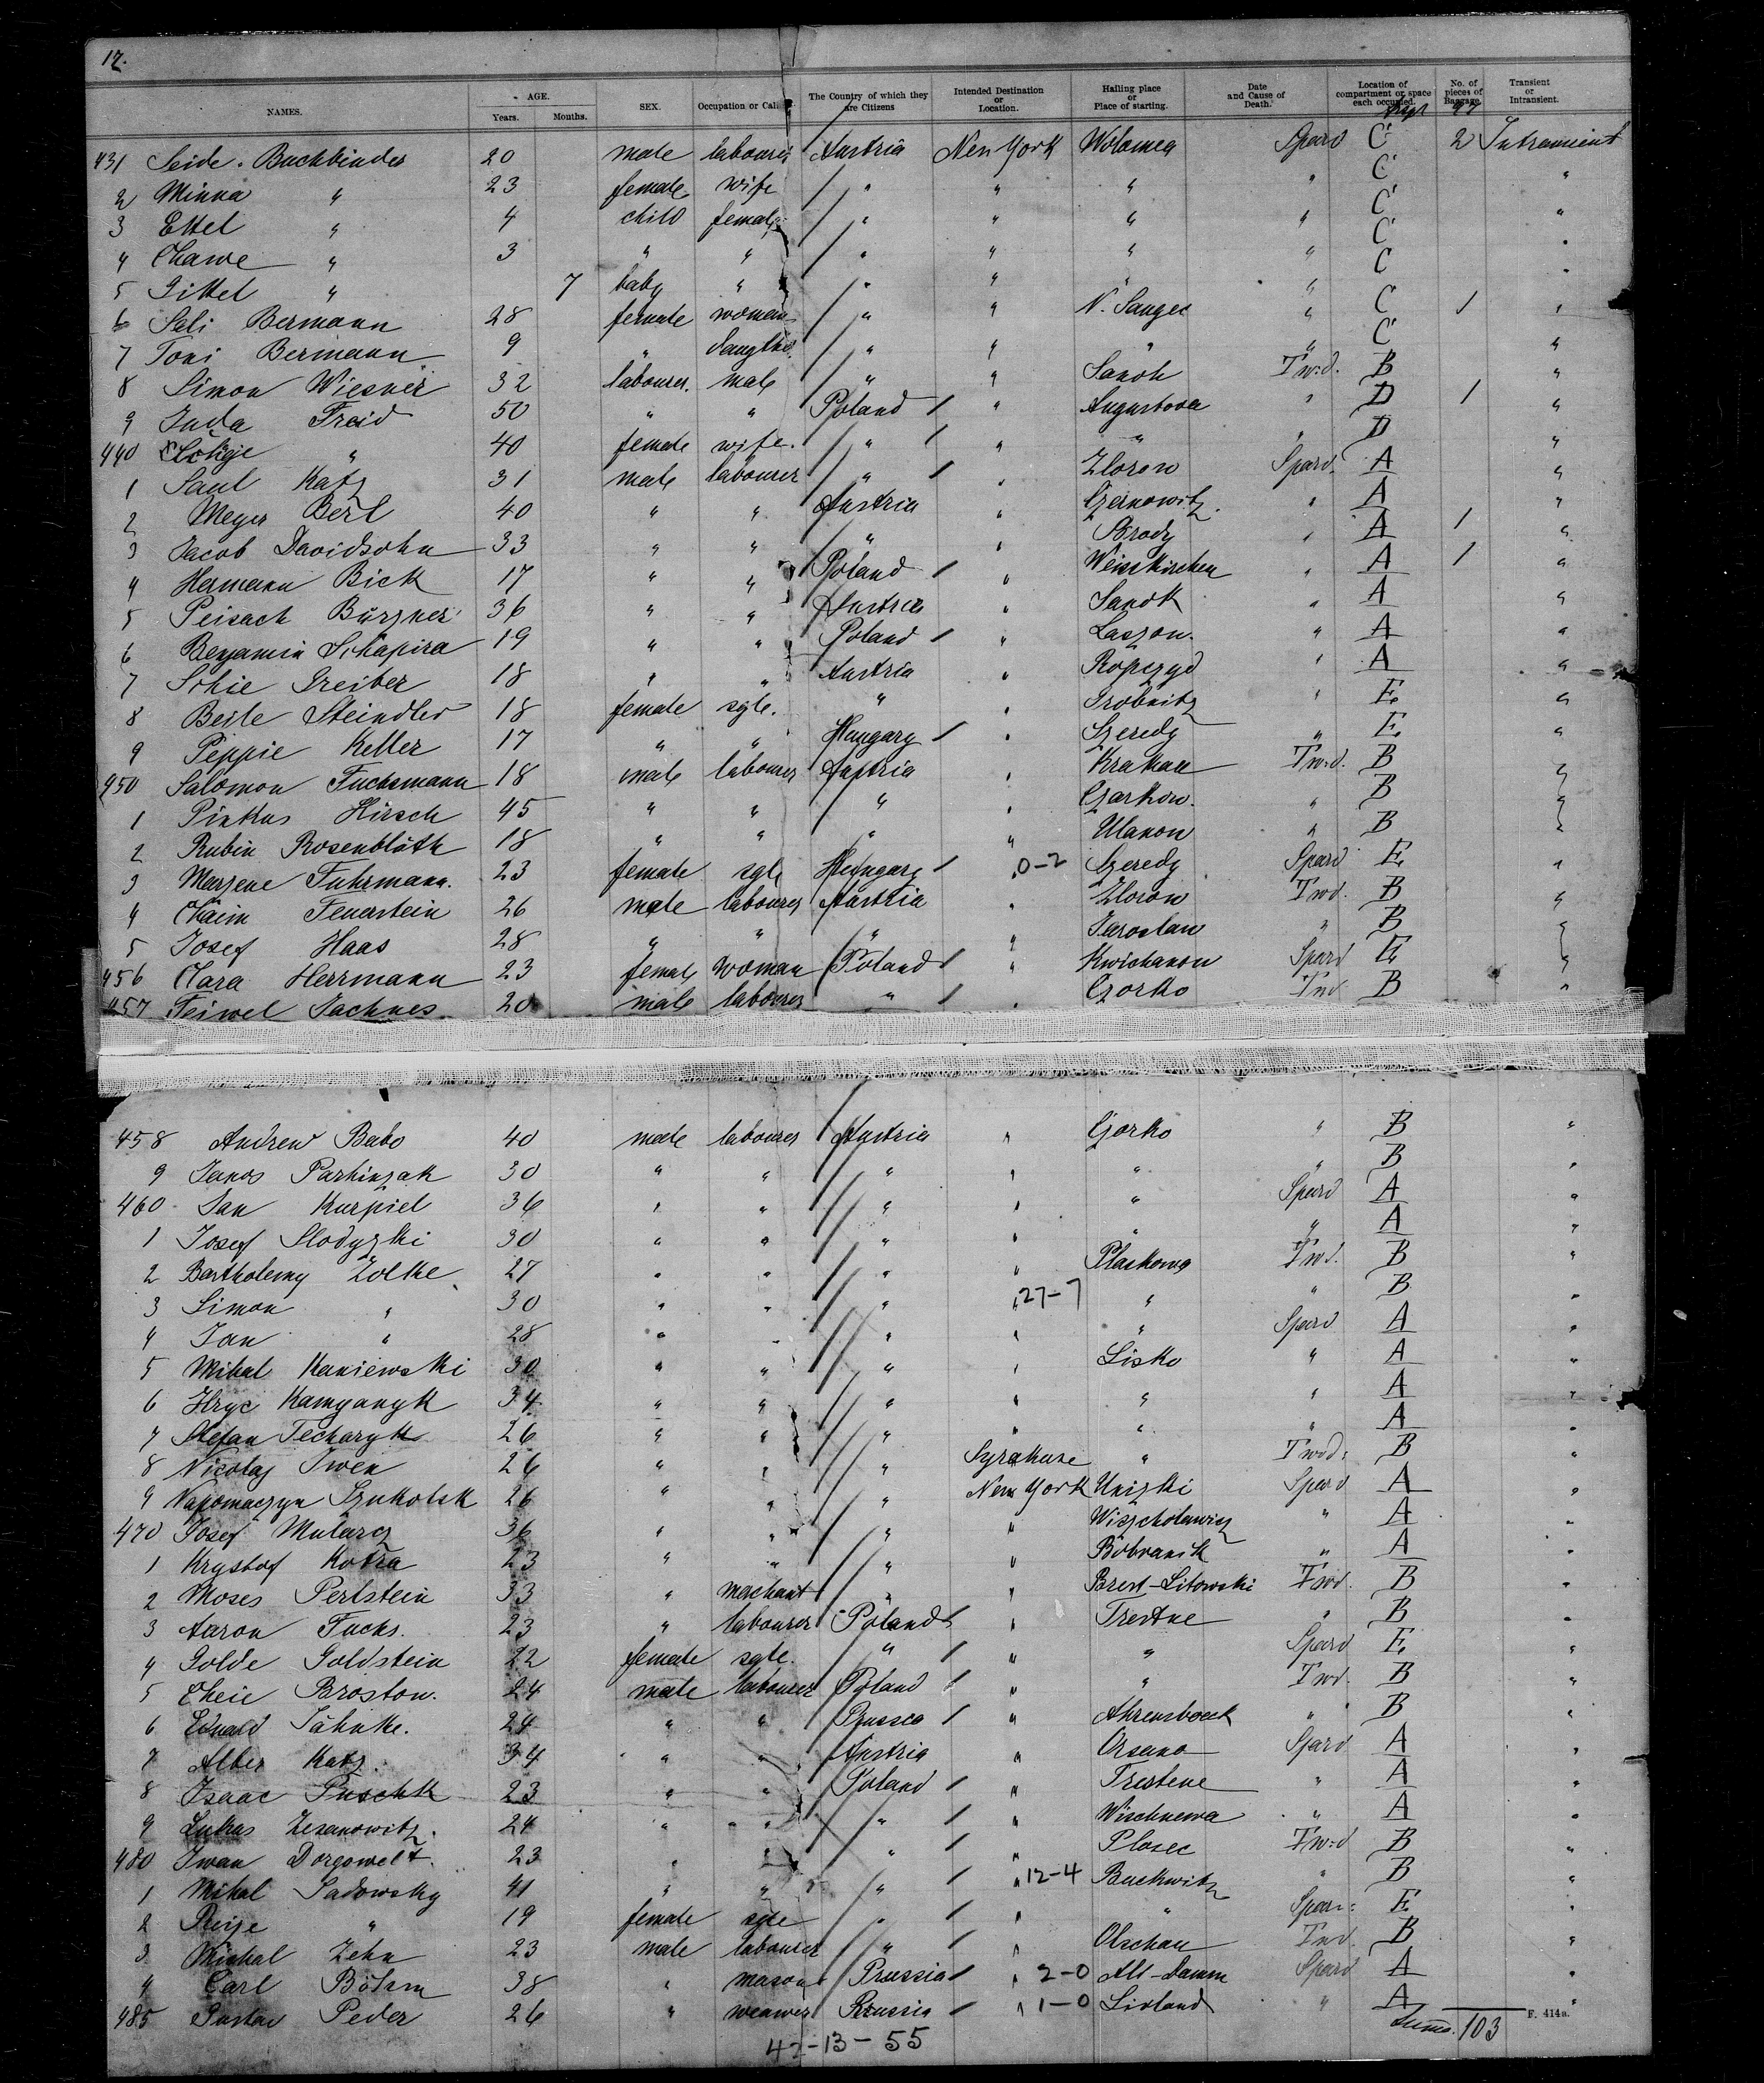 12.
NAMES. AGE. Years. Months. SEX. Occupation or Calling The Country of which they are Citizens Intended Destination or Location. Hailing place or Place of starting. Date and Cause of Death. Location of compartment or space each occupied. No. of pieces of Baggage. Transient or Intransient.
97
431 Seide Buchbinder 20 male labourer Austria New York Spard C 2 Intransient
2 Minna " 23 female wife " " " " C "
3 Ettel " 4 child female " " " " C "
4 Chawe " 3 " " " " " " C "
5 Gittel " 7 baby " " " " " C "
6 Sali Bermann 28 female woman " " N. Sangec " C 1 "
7 Toni Bermann 9 " " " " " C "
8 Simon Wiesner 32 labourer. male " " Sanok Twd. B "
9 Juda Freid 50 " " Poland " Augustova " D 1 "
440 " 40 female wife. " " " " D "
1 Saul Katz 31 male labourer " " Zloron Spard. A "
2 Meyer Berl 40 " " Austria " Czernowitz. " A "
3 Jacob Davidsohn 33 " " " " Brody " A 1 "
4 Hermann Bick 17 " " Poland " Weisskirchen " A 1 "
5 Peisach 36 " " Austria " Sanok " A "
6 Benjamin Schapira 19 " " Poland " Laszon. " A "
7 Schie Greiber 18 " " Austria " Ropczyd " A "
8 Beile Steindler 18 female sgle. " " Grobnitz " E. "
9 Peppie Keller 17 " " Hungary " Szeredy " E. "
450 Salomon Fuchsmann 18 male labourer Austria " Krakau Twd. B "
1 Pinkus Hirsch 45 " " " " Czarkow. " B "
2 Rubin Rosenblüth 18 " " " " Ulanon " B "
3 Marjene Fuhrmann. 23 female sgle Hungary " 0-2 Szeredy Spard E. "
4 Chaim Feuerstein 26 male labourer Austria " Zloron Twd. B "
5 Josef Haas 28 " " " " Jaroslau " B "
456 Clara Herrmann 23 female woman Poland " Kwichanon Spard E. "
457 Feiwel Jachnes 20 male labourer " " Gorko Twd B "
458 Andrew Babo 40 male labourer Austria " Gorko " B "
9 Janos Parhinzak 30 " " " " " " B "
460 Jan Kurpiel 36 " " " " " Spard A "
1 Josef Slodyzki 30 " " " " " " A "
2 Bartholemy Zolke 27 " " " " Plaskowa Twd. B "
3 Simon " 30 " " " " 27-7 " " B "
4 Jan " 28 " " " " " Spard A "
5 Mikal Kaniewski 30 " " " " Lisko " A "
6 Hryc Kamyanyk 34 " " " " " " A "
7 Stefan Techaryk 26 " " " " " " A "
8 Nicolaj Iwen 26 " " " Syrakuse " Twd. B "
9 26 " " " New York Unizki Spard A "
470 Josef Mularcz 36 " " " " " A "
1 Krystof Kotra 23 " " " " Bobranik " A "
2 Moses Perlstein 33 " merchant " " Brest-Litowski Twd. B "
3 Aaron Fuchs. 23 " labourer Poland " Trestne " B "
4 Golde Goldstein 22 female sgle. " " " Spard E. "
5 Broston. 24 male labourer Poland " " Twd. B "
6 Eduard Jähnke. 24 " " Prussia " Ahrensboeck " B "
7 Alber Katz. 34 " " Austria " Orsano Spard A "
8 Isaac Puschk 23 " " Poland " Trestene " A "
9 Lukas Zesanowitz. 24 " " " " Wischnewa " A "
480 Iwan Dorgowelt. 23 " " " " Plosec Twd B "
1 Mikal Sadowsky 41 " " " " 12-4 Buckwitz " B "
2 Reise " 19 female sgle " " " Spard E. "
3 Michal Zehn 23 male labourer " " Olschau Twd. B "
4 Carl Böhm 38 " mason Prussia " 2-0 Alt-Damm Spard A "
485 Gustav Peder 26 " weawer Russia " 1-0 Livland " A "
Summa. 103 F. 414a.
42-13-55